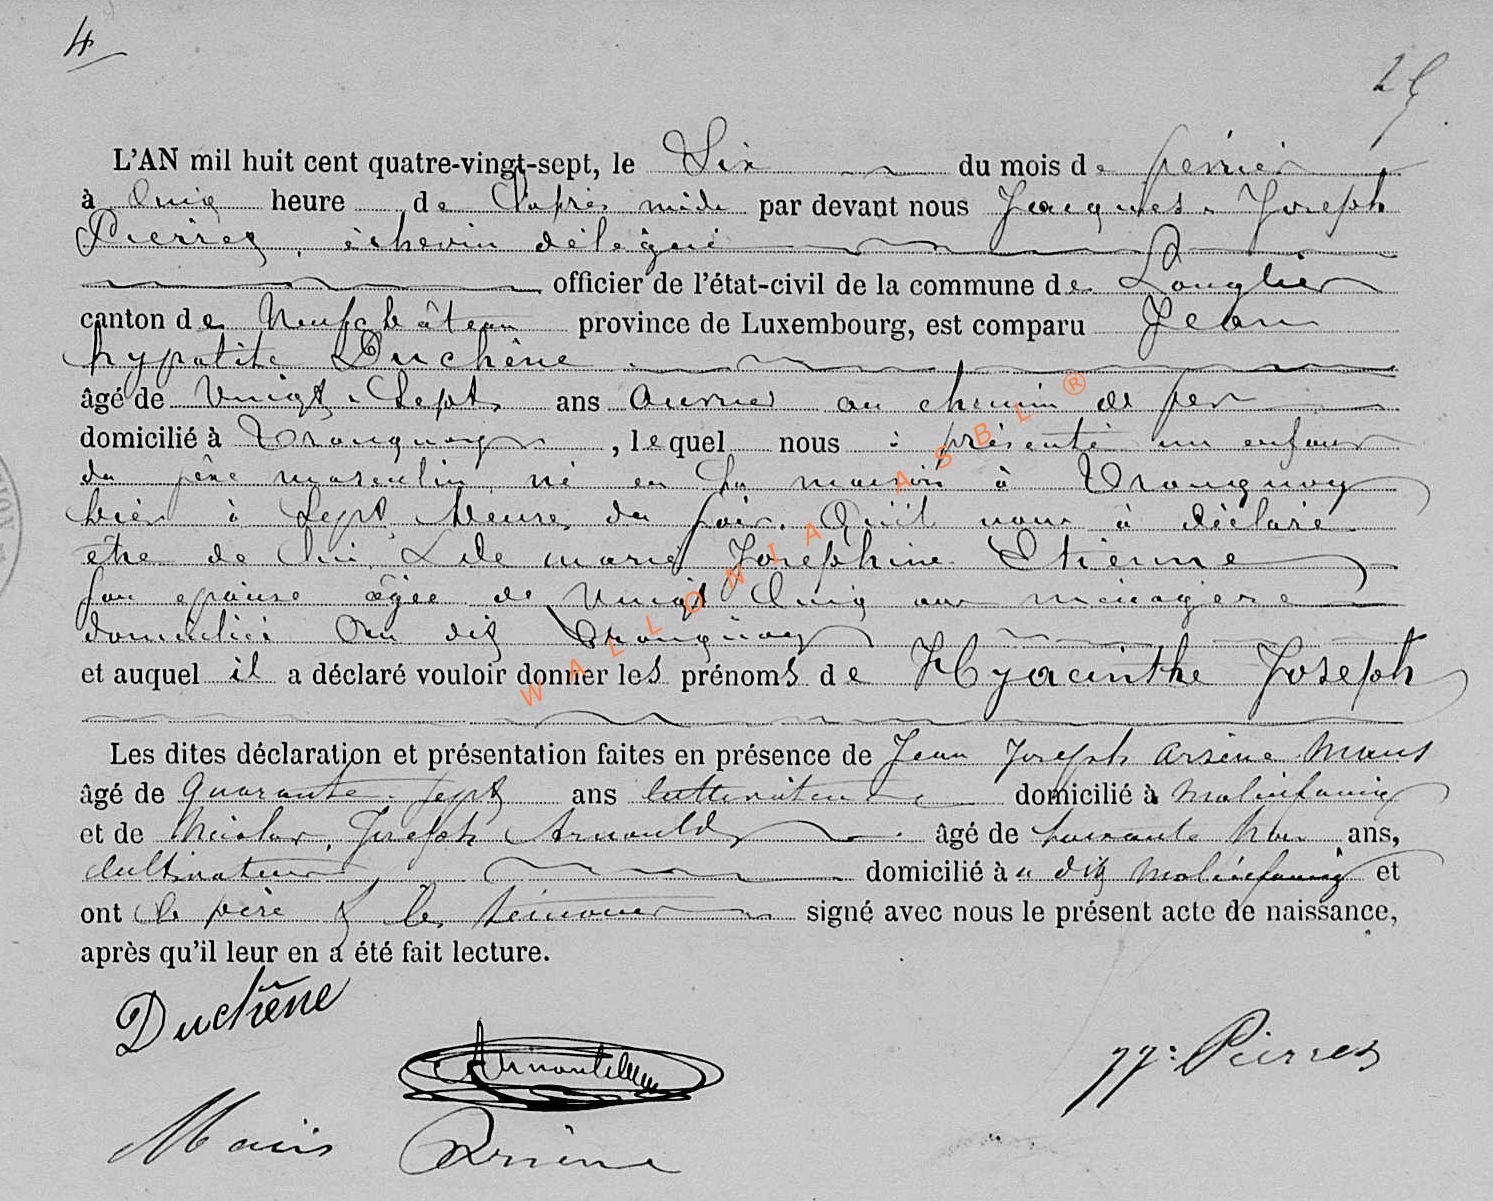 4
25
L'AN mil huit cent quatre-vingt-sept, le Six du mois de fevrier
à Cinq heure de l'après midi par devant nous Jacques Joseph
Pierres, échevin délégué
officier de l'état-civil de la commune de Longlier
canton de Neufchâteau province de Luxembourg, est comparu Jean
hypolite Duchêne
âgé de Vingt Sept ans ouvrier au chemin de fer
domicilié à Tronquoy, lequel nous à présenté un enfant
du sexe masculin, né en sa maison à Tronquoy
hier à Sept heures du soir. Qu'il nous à déclaré
être de lui & de marie Joséphine Etienne
son epouse agée de Vingt Cinq ans ménagère
domiciliés au dit Tronquoy
et auquel il a déclaré vouloir donner les prénoms de Hyacinthe Joseph
Les dites déclaration et présentation faites en présence de Jean Joseph arsène Maus
âgé de quarante Sept ans Cultivateur domicilié à Molinfaing
et de Nicolas, Joseph Arnould âgé de soixante ans,
Cultivateur domicilié à dit Molinfaing et
ont le père & les témoins signé avec nous le présent acte de naissance,
après qu'il leur en a été fait lecture.
Duchêne
JJ: Pierres
Maus Arsène
WALLONIA ASBL ®